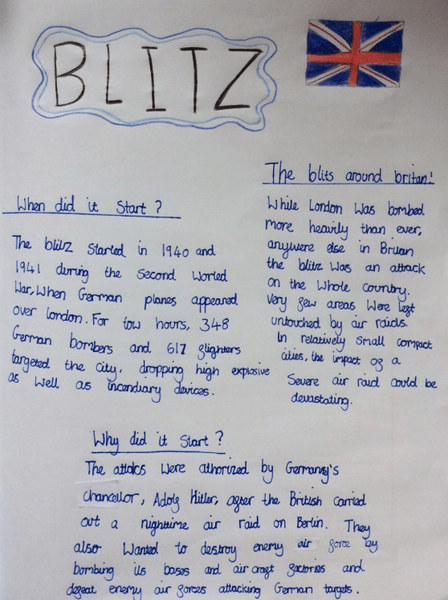 BLITZ
When did it start?
The blitz started in 1940 and
1941 during the second world
War, When German planes appeared
over london. For tow hours, 348
German bombers and 617 fighters
targeted the city, dropping high explosive
as well as incendiary devices.
The blits around britan!
While London was bombed
more heavily than ever,
anywere else in Britian
the blitz was an attack
on the whole country.
Very few areas were left
untouched by air raids.
In relatively small compact
cities, the impact of a
severe air raid could be
devastating.
Why did it start?
The attacks were athorized by Germaney's
chancellor, Adolf Hitler, after the British carried
out a nightime air raid on Berlin. They
also wanted to destroy enemy air force by
bombing its bases and air craft factories and
defeat enemy air forces attacking German targets.